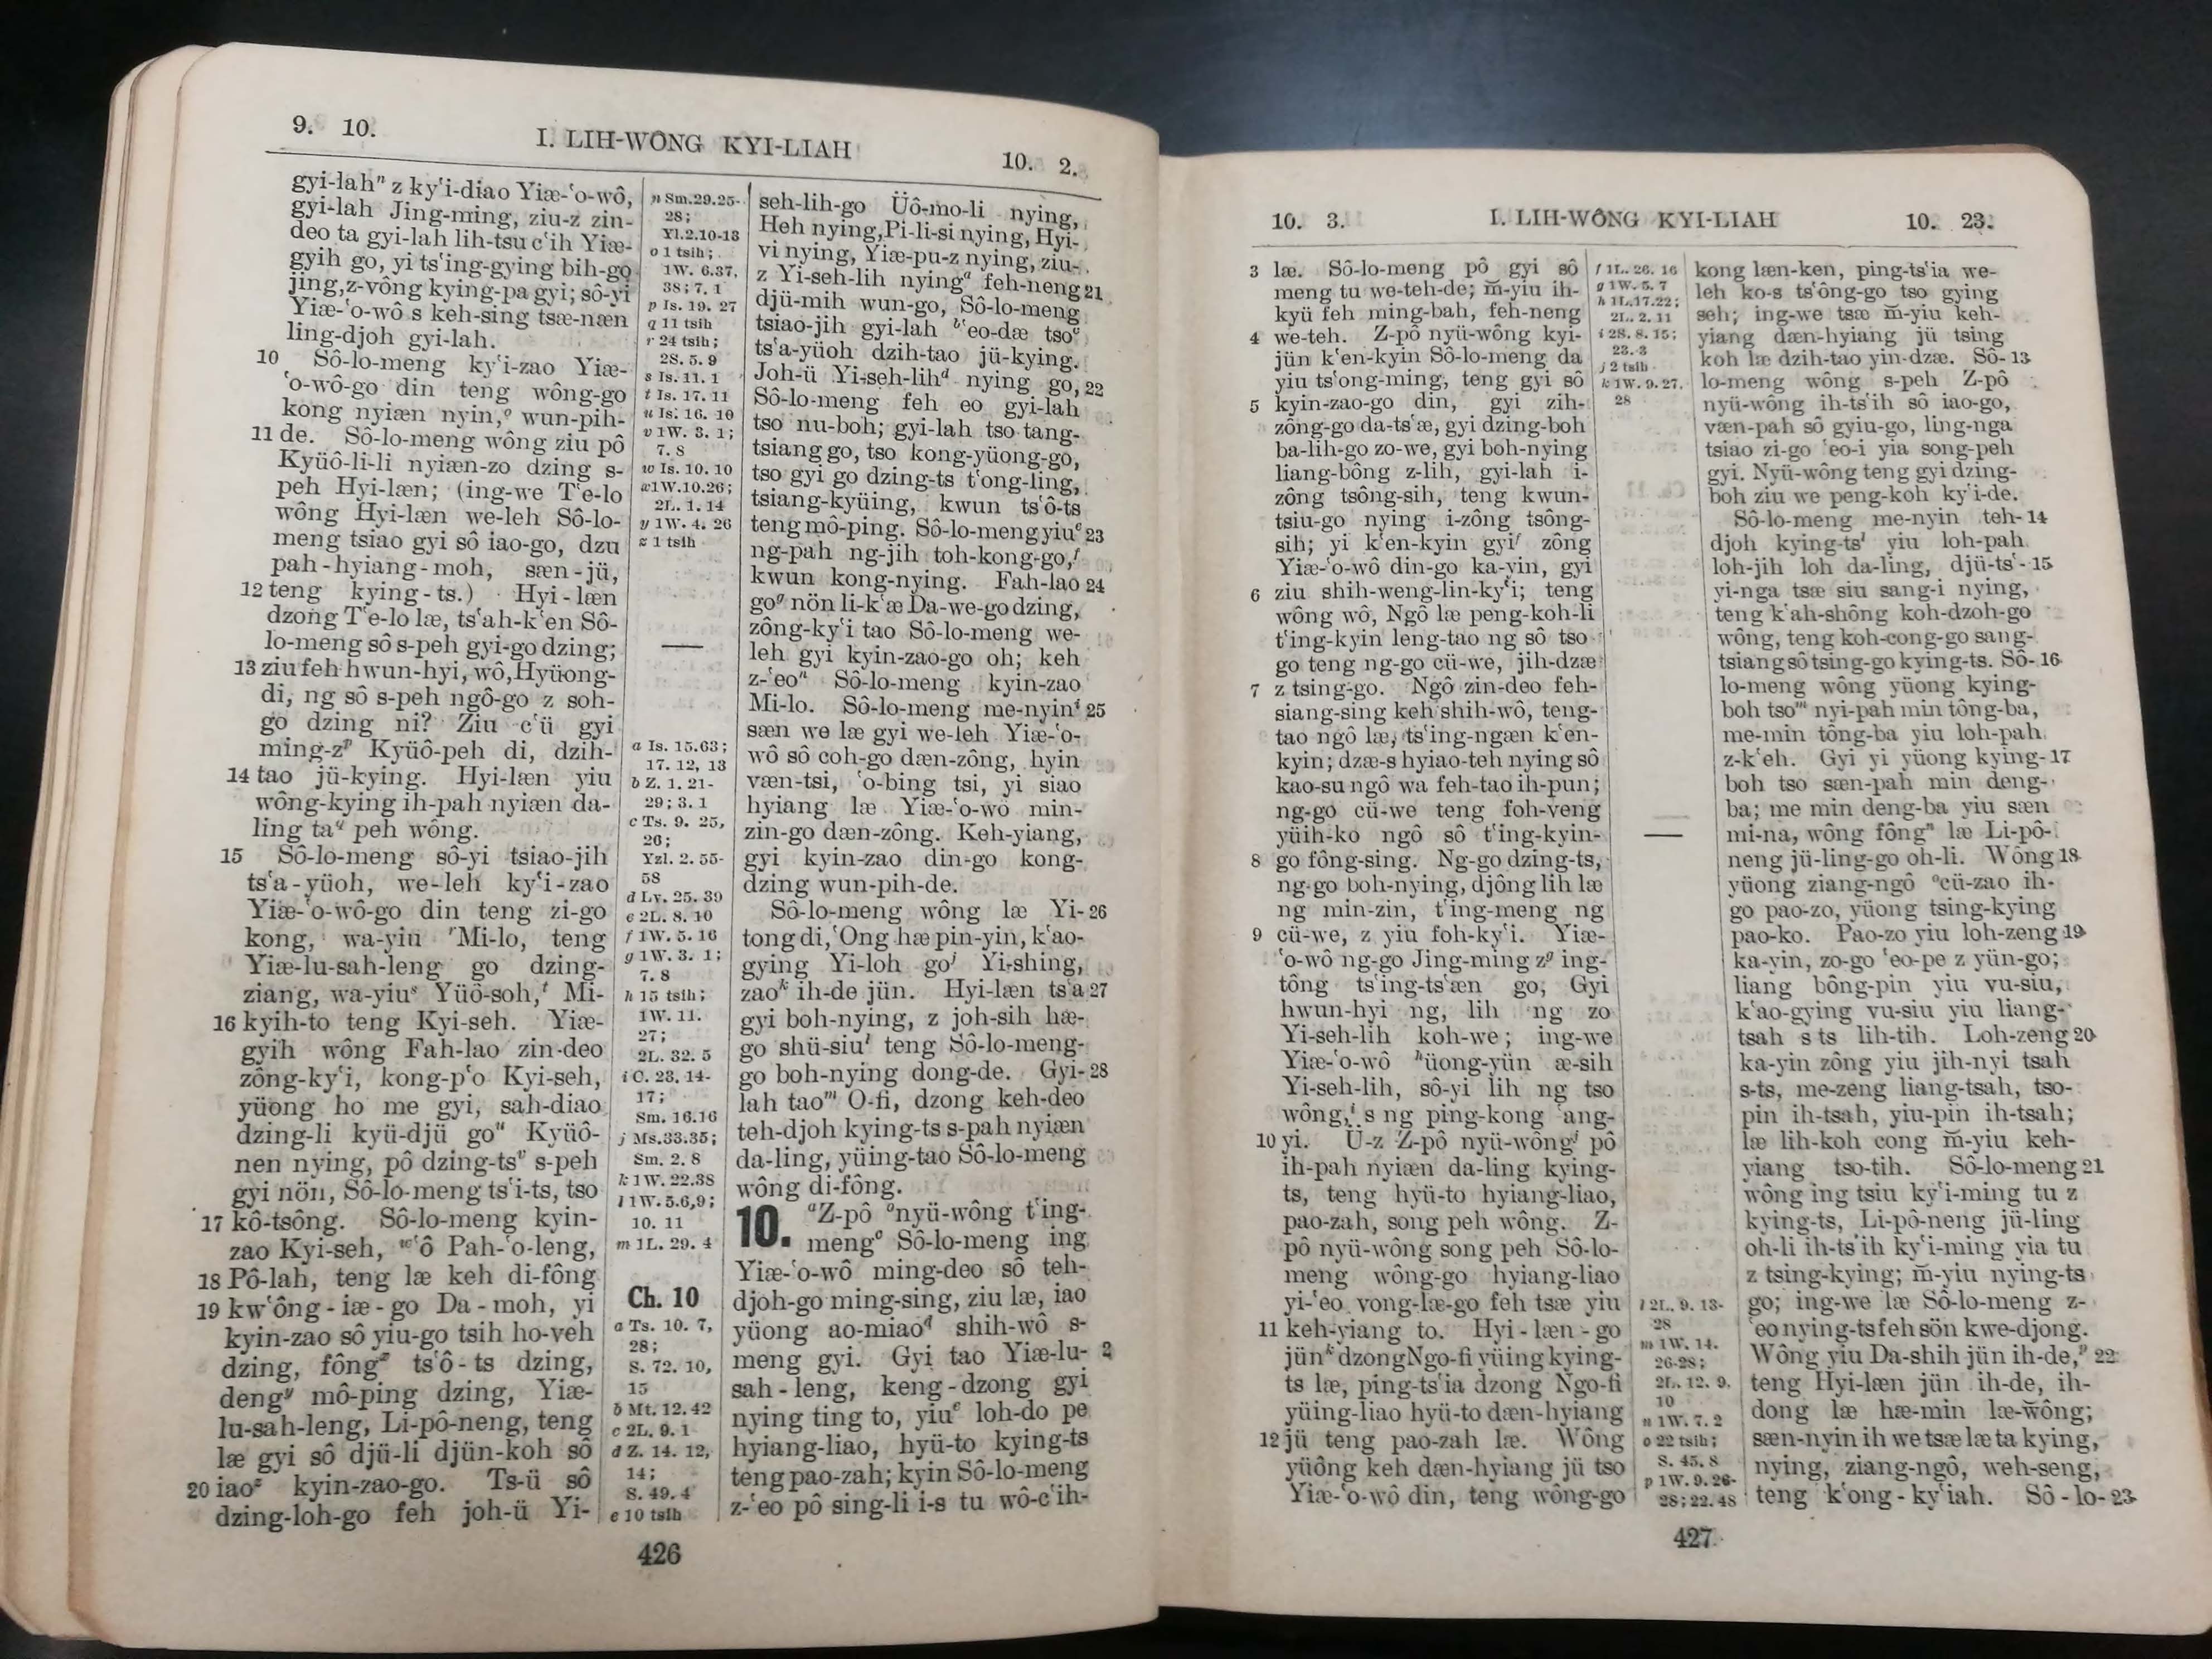 9. 10.
I. LIH-WÔNG KYI-LIAH
10. 2.
gyi-lahⁿ z ky‘i-diao Yiæ-‘o-wô,
gyi-lah Jing-ming, ziu-z zin-
deo ta gyi-lah lih-tsu c‘ih Yiæ-
gyih go, yi ts‘ing-gying bih-go
jing, z-vông kying-pa gyi; sô-yi
Yiæ-‘o-wô s keh-sing tsæ-næn
ling-djoh gyi-lah.
10 Sô-lo-meng ky‘i-zao Yiæ-
‘o-wô-go din teng wông-go
kong nyiæn nyin,ᵒ wun-pih-
11 de. Sô-lo-meng wông ziu pô
Kyüô-li-li nyiæn-zo dzing s-
peh Hyi-læn; (ing-we T‘e-lo
wông Hyi-læn we-leh Sô-lo-
meng tsiao gyi sô iao-go, dzu
pah-hyiang-moh, sæn-jü,
12 teng kying-ts.) Hyi-læn
dzong T‘e-lo læ, ts‘ah-k‘en Sô-
lo-meng sô s-peh gyi-go dzing;
13 ziu feh hwun-hyi, wô, Hyüong-
di, ng sô s-peh ngô-go z soh-
go dzing ni? Ziu c‘ü gyi
ming-zᵖ Kyüô-peh di, dzih-
14 tao jü-kying. Hyi-læn yiu
wông-kying ih-pah nyiæn da-
ling ta^q peh wông.
15 Sô-lo-meng sô-yi tsiao-jih
ts‘a-yüoh, we-leh ky‘i-zao
Yiæ-‘o-wô-go din teng zi-go
kong, wa-yiu ʳMi-lo, teng
Yiæ-lu-sah-leng go dzing-
ziang, wa-yiuˢ Yüô-soh,ᵗ Mi-
16 kyih-to teng Kyi-seh. Yiæ-
gyih wông Fah-lao zin-deo
zông-ky‘i, kong-p‘o Kyi-seh,
yüong ho me gyi, sah-diao
dzing-li kyü-djü goᵘ Kyüô-
nen nying, pô dzing-tsᵛ s-peh
gyi nön, Sô-lo-meng ts‘i-ts, tso
17 kô-tsông. Sô-lo-meng kyin-
zao Kyi-seh, ʷ‘ô Pah-‘o-leng,
18 Pô-lah, teng læ keh di-fông
19 kw‘ông-iæ-go Da-moh, yi
kyin-zao sô yiu-go tsih ho-veh
dzing, fôngˣ ts‘ô-ts dzing,
dengʸ mô-ping dzing, Yiæ-
lu-sah-leng, Li-pô-neng, teng
læ gyi sô djü-li djün-koh sô
20 iaoᶻ kyin-zao-go. Ts-ü sô
dzing-loh-go feh joh-ü Yi-
n Sm.29.25-
28;
Yl.2.10-13
o 1 tsih;
1W. 6.37,
38; 7. 1
p Is. 19. 27
q 11 tsih
r 24 tsih;
2S. 5. 9
s Is. 11. 1
t Is. 17. 11
u Is. 16. 10
v 1W. 3. 1;
7. 8
w Is. 10. 10
x 1W.10.26;
2L. 1. 14
y 1W. 4. 26
z 1 tsih
a Is. 15.63;
17. 12, 13
b Z. 1. 21-
29; 3. 1
c Ts. 9. 25,
26;
Yzl. 2. 55-
58
d Lv. 25. 39
e 2L. 8. 10
f 1W. 5. 16
g 1W. 3. 1;
7. 8
h 15 tsih;
1W. 11.
27;
2L. 32. 5
i C. 23. 14-
17;
Sm. 16.16
j Ms.33.35;
Sm. 2. 8
k 1W. 22.38
l 1W. 5.6,9;
10. 11
m 1L. 29. 4
Ch. 10
a Ts. 10. 7,
28;
S. 72. 10,
15
b Mt. 12. 42
c 2L. 9. 1
d Z. 14. 12,
14;
S. 49. 4
e 10 tsih
seh-lih-go Üô-mo-li nying,
Heh nying, Pi-li-si nying, Hyi-
vi nying, Yiæ-pu-z nying, ziu-
z Yi-seh-lih nyingᵃ feh-neng 21
djü-mih wun-go, Sô-lo-meng
tsiao-jih gyi-lah ᵇ‘eo-dæ tsoᶜ
ts‘a-yüoh dzih-tao jü-kying.
Joh-ü Yi-seh-lihᵈ nying go, 22
Sô-lo-meng feh eo gyi-lah
tso nu-boh; gyi-lah tso tang-
tsiang go, tso kong-yüong-go,
tso gyi go dzing-ts t‘ong-ling,
tsiang-kyüing, kwun ts‘ô-ts
teng mô-ping. Sô-lo-meng yiuᵉ 23
ng-pah ng-jih toh-kong-go,ᶠ
kwun kong-nying. Fah-lao 24
goᵍ nön li-k‘æ Da-we-go dzing,
zông-ky‘i tao Sô-lo-meng we-
leh gyi kyin-zao-go oh; keh
z-‘eoʰ Sô-lo-meng kyin-zao
Mi-lo. Sô-lo-meng me-nyinⁱ 25
sæn we læ gyi we-leh Yiæ-‘o-
wô sô coh-go dæn-zông, hyin
væn-tsi, ‘o-bing tsi, yi siao
hyiang læ Yiæ-‘o-wô min-
zin-go dæn-zông. Keh-yiang,
gyi kyin-zao din-go kong-
dzing wun-pih-de.
Sô-lo-meng wông læ Yi- 26
tong di, ‘Ong hæ pin-yin, k‘ao-
gying Yi-loh goʲ Yi-shing,
zaoᵏ ih-de jün. Hyi-læn ts‘a 27
gyi boh-nying, z joh-sih hæ-
go shü-siuˡ teng Sô-lo-meng-
go boh-nying dong-de. Gyi- 28
lah taoᵐ O-fi, dzong keh-deo
teh-djoh kying-ts s-pah nyiæn
da-ling, yüing-tao Sô-lo-meng
wông di-fông.
10. ᵃZ-pô ᵇnyü-wông t‘ing-
mengᶜ Sô-lo-meng ing
Yiæ-‘o-wô ming-deo sô teh-
djoh-go ming-sing, ziu læ, iao
yüong ao-miaoᵈ shih-wô s-
meng gyi. Gyi tao Yiæ-lu- 2
sah-leng, keng-dzong gyi
nying ting to, yiuᵉ loh-do pe
hyiang-liao, hyü-to kying-ts
teng pao-zah; kyin Sô-lo-meng
z-‘eo pô sing-li i-s tu wô-c‘ih-
426
10. 3.
I. LIH-WÔNG KYI-LIAH
10. 23.
3 læ. Sô-lo-meng pô gyi sô
meng tu we-teh-de; m̆-yiu ih-
kyü feh ming-bah, feh-neng
4 we-teh. Z-pô nyü-wông kyi-
jün k‘en-kyin Sô-lo-meng da
yiu ts‘ong-ming, teng gyi sô
5 kyin-zao-go din, gyi zih-
zông-go da-ts‘æ, gyi dzing-boh
ba-lih-go zo-we, gyi boh-nying
liang-bông z-lih, gyi-lah i-
zông tsông-sih, teng kwun-
tsiu-go nying i-zông tsông-
sih; yi k‘en-kyin gyiᶠ zông
Yiæ-‘o-wô din-go ka-yin, gyi
6 ziu shih-weng-lin-ky‘i; teng
wông wô, Ngô læ peng-koh-li
t‘ing-kyin leng-tao ng sô tso
go teng ng-go cü-we, jih-dzæ
7 z tsing-go. Ngô zin-deo feh-
siang-sing keh shih-wô, teng-
tao ngô læ, ts‘ing-ngæn k‘en-
kyin; dzæ-s hyiao-teh nying sô
kao-su ngô wa feh-tao ih-pun;
ng-go cü-we teng foh-veng
yüih-ko ngô sô t‘ing-kyin-
8 go fông-sing. Ng-go dzing-ts,
ng-go boh-nying, djông lih læ
ng min-zin, t‘ing-meng ng
9 cü-we, z yiu foh-ky‘i. Yiæ-
‘o-wô ng-go Jing-ming zᵍ ing-
tông ts‘ing-ts‘æn go, Gyi
hwun-hyi ng, lih ng zo
Yi-seh-lih koh-we; ing-we
Yiæ-‘o-wô ʰüong-yün æ-sih
Yi-seh-lih, sô-yi lih ng tso
wông,ⁱ s ng ping-kong ‘ang-
10 yi. Ü-z Z-pô nyü-wôngʲ pô
ih-pah nyiæn da-ling kying-
ts, teng hyü-to hyiang-liao,
pao-zah, song peh wông. Z-
pô nyü-wông song peh Sô-lo-
meng wông-go hyiang-liao
yi-‘eo vong-læ-go feh tsæ yiu
11 keh-yiang to. Hyi-læn-go
jünᵏ dzong Ngo-fi yüing kying-
ts læ, ping-ts‘ia dzong Ngo-fi
yüing-liao hyü-to dæn-hyiang
12 jü teng pao-zah læ. Wông
yüông keh dæn-hyiang jü tso
Yiæ-‘o-wô din, teng wông-go
f 1L. 26. 16
g 1W. 5. 7
h 1L.17.22;
2L. 2. 11
i 2S. 8. 15;
23. 3
j 2 tsih
k 1W. 9. 27,
28
l 2L. 9. 13-
28
m 1W. 14.
26-28;
2L. 12. 9,
10
n 1W. 7. 2
o 22 tsih;
S. 45. 8
p 1W. 9.26-
28; 22. 48
kong læn-ken, ping-ts‘ia we-
leh ko-s ts‘ông-go tso gying
seh; ing-we tsæ m̆-yiu keh-
yiang dæn-hyiang jü tsing
koh læ dzih-tao yin-dzæ. Sô- 13
lo-meng wông s-peh Z-pô
nyü-wông ih-ts‘ih sô iao-go,
væn-pah sô gyiu-go, ling-nga
tsiao zi-go ‘eo-i yia song-peh
gyi. Nyü-wông teng gyi dzing-
boh ziu we peng-koh ky‘i-de.
Sô-lo-meng me-nyin teh- 14
djoh kying-tsˡ yiu loh-pah
loh-jih loh da-ling, djü-ts‘- 15
yi-nga tsæ siu sang-i nying,
teng k‘ah-shông koh-dzoh-go
wông, teng koh-cong-go sang-
tsiang sô tsing-go kying-ts. Sô- 16
lo-meng wông yüong kying-
boh tsoᵐ nyi-pah min tông-ba,
me-min tông-ba yiu loh-pah
z-k‘eh. Gyi yi yüong kying- 17
boh tso sæn-pah min deng-
ba; me min deng-ba yiu sæn
mi-na, wông fôngⁿ læ Li-pô-
neng jü-ling-go oh-li. Wông 18
yüong ziang-ngô ᵒcü-zao ih-
go pao-zo, yüong tsing-kying
pao-ko. Pao-zo yiu loh-zeng 19
ka-yin, zo-go ‘eo-pe z yün-go;
liang bông-pin yiu vu-siu,
k‘ao-gying vu-siu yiu liang-
tsah s ts lih-tih. Loh-zeng 20
ka-yin zông yiu jih-nyi tsah
s-ts, me-zeng liang-tsah, tso-
pin ih-tsah, yiu-pin ih-tsah;
læ lih-koh cong m̆-yiu keh-
yiang tso-tih. Sô-lo-meng 21
wông ing tsiu ky‘i-ming tu z
kying-ts, Li-pô-neng jü-ling
oh-li ih-ts‘ih ky‘i-ming yia tu
z tsing-kying; m̆-yiu nying-ts
go; ing-we læ Sô-lo-meng z-
‘eo nying-ts feh sön kwe-djong.
Wông yiu Da-shih jün ih-de,ᵖ 22
teng Hyi-læn jün ih-de, ih-
dong læ hæ-min læ-w̆ông;
sæn-nyin ih we tsæ læ ta kying,
nying, ziang-ngô, weh-seng,
teng k‘ong-ky‘iah. Sô-lo- 23
427